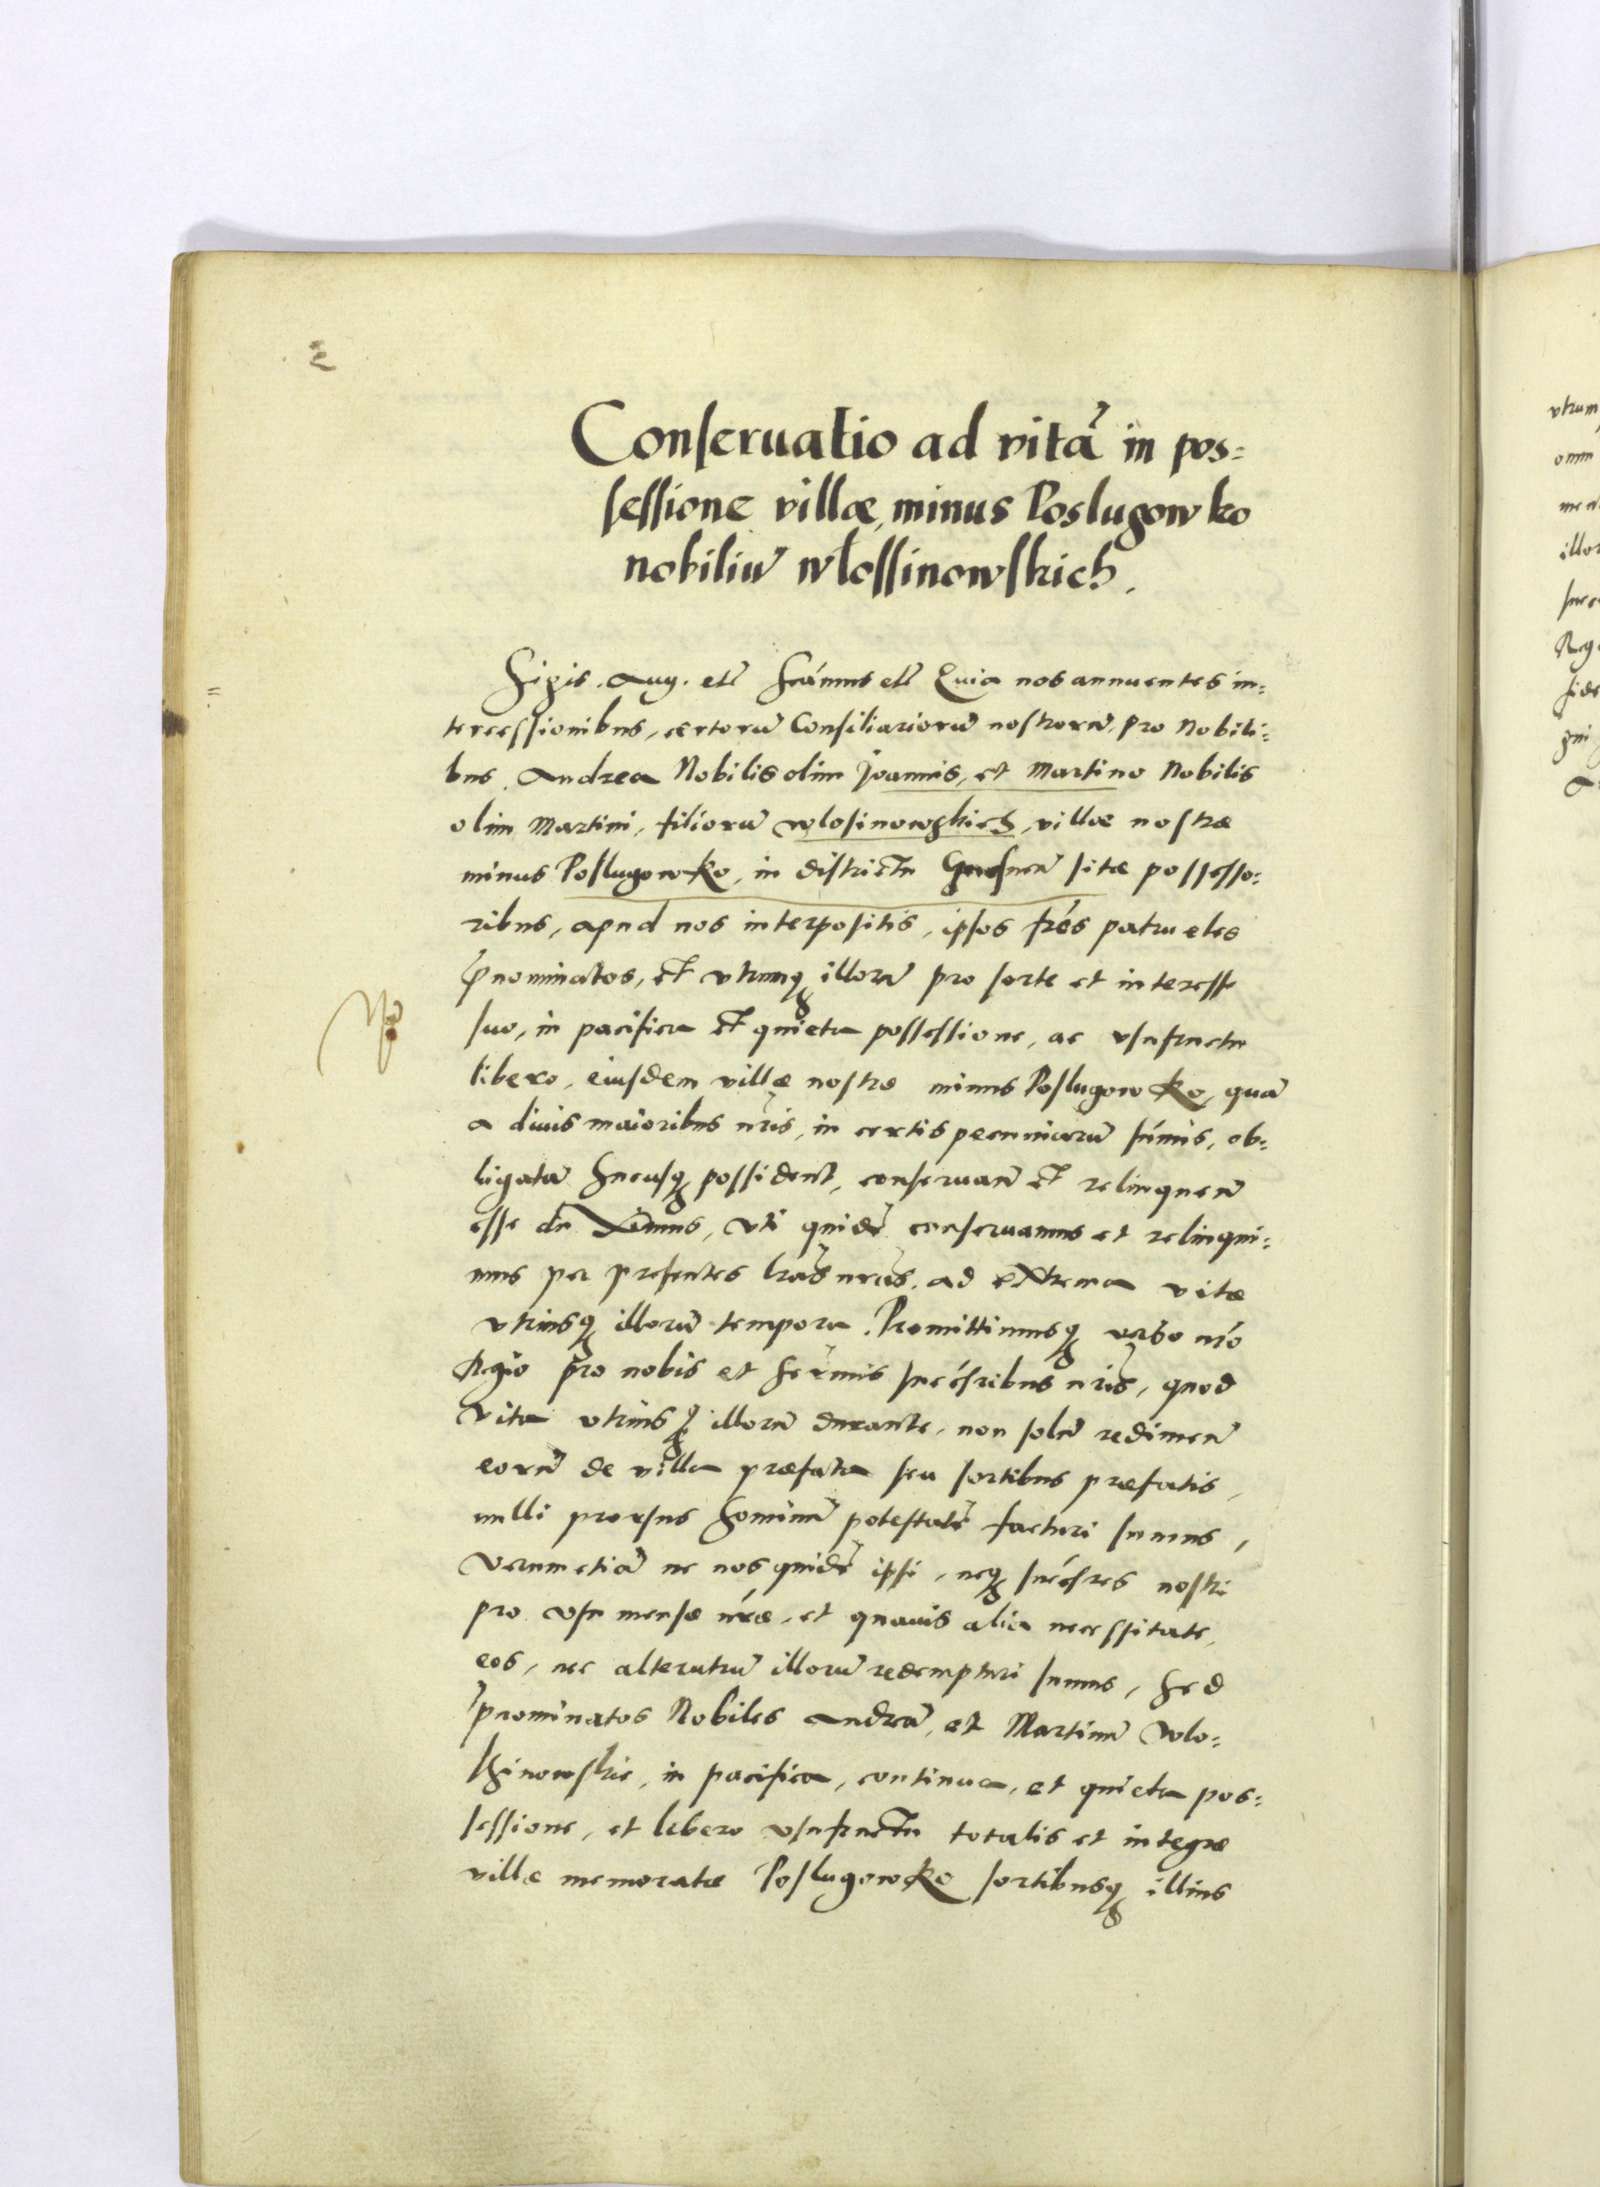 Conseruatio ad vitã in pos=
sessione villæ, minus Poslugowko
nobiliũ włossinowskich.
Sigis. Aug. etc̃ Scám̃us etc̃ Quia nos annuentes in=
tercessionibus, certorũ Consiliariorũ nostrorũ, pro Nobili=
bus. Andrea Nobilis olim Joannis, et Martino Nobilis
olim Martini, filiorũ wlosinowskich, villæ nostræ
minus Poslugowko, in districtu Gnesneñ sitæ possesso=
ribus, apud nos interpositis, ipsos frẽs patrueles
p̃nominatos, et vtrumq illorũ pro sorte et interesse
suo, in pacifica et quieta possessione, ac vsufructu
libero, eiusdem villæ nostræ minus Poslugowko, quã
a diuis maioribus nr̃is, in certis pecuniarũ sum̃is, ob=
ligatã hucusq possident, conseruañ et relinqueñ
esse duximus, vti quidẽ conseruamus et relinqui=
mus per presentes lrãs nrãs. ad extrema vitæ
vtriusq illorũ tempora. Promittimusq verbo nr̃o
Regio pro nobis et Ser̃mis succ̃oribus nr̃is, quod
vita vtriusq illorũ durante, non solũ redimeñ
eorũ de villa præfata seu sortibus præfatis,
nulli prorsus hominũ potestatẽ facturi sumus,
verumetiã ne nos quidẽ ipsi, neq succ̃ores nostri
pro vsu mensæ nr̃æ, et quauis alia necessitate,
eos, nec alterutrũ illorũ redempturi sumus, Sed
p̃nominatos Nobiles Andreã, et Martinũ Wlo=
szinowskie, in pacifica, continua, et quieta pos=
sessione, et libero vsufructu totalis et integræ
villæ memoratæ Poslugowko sortibusq illius